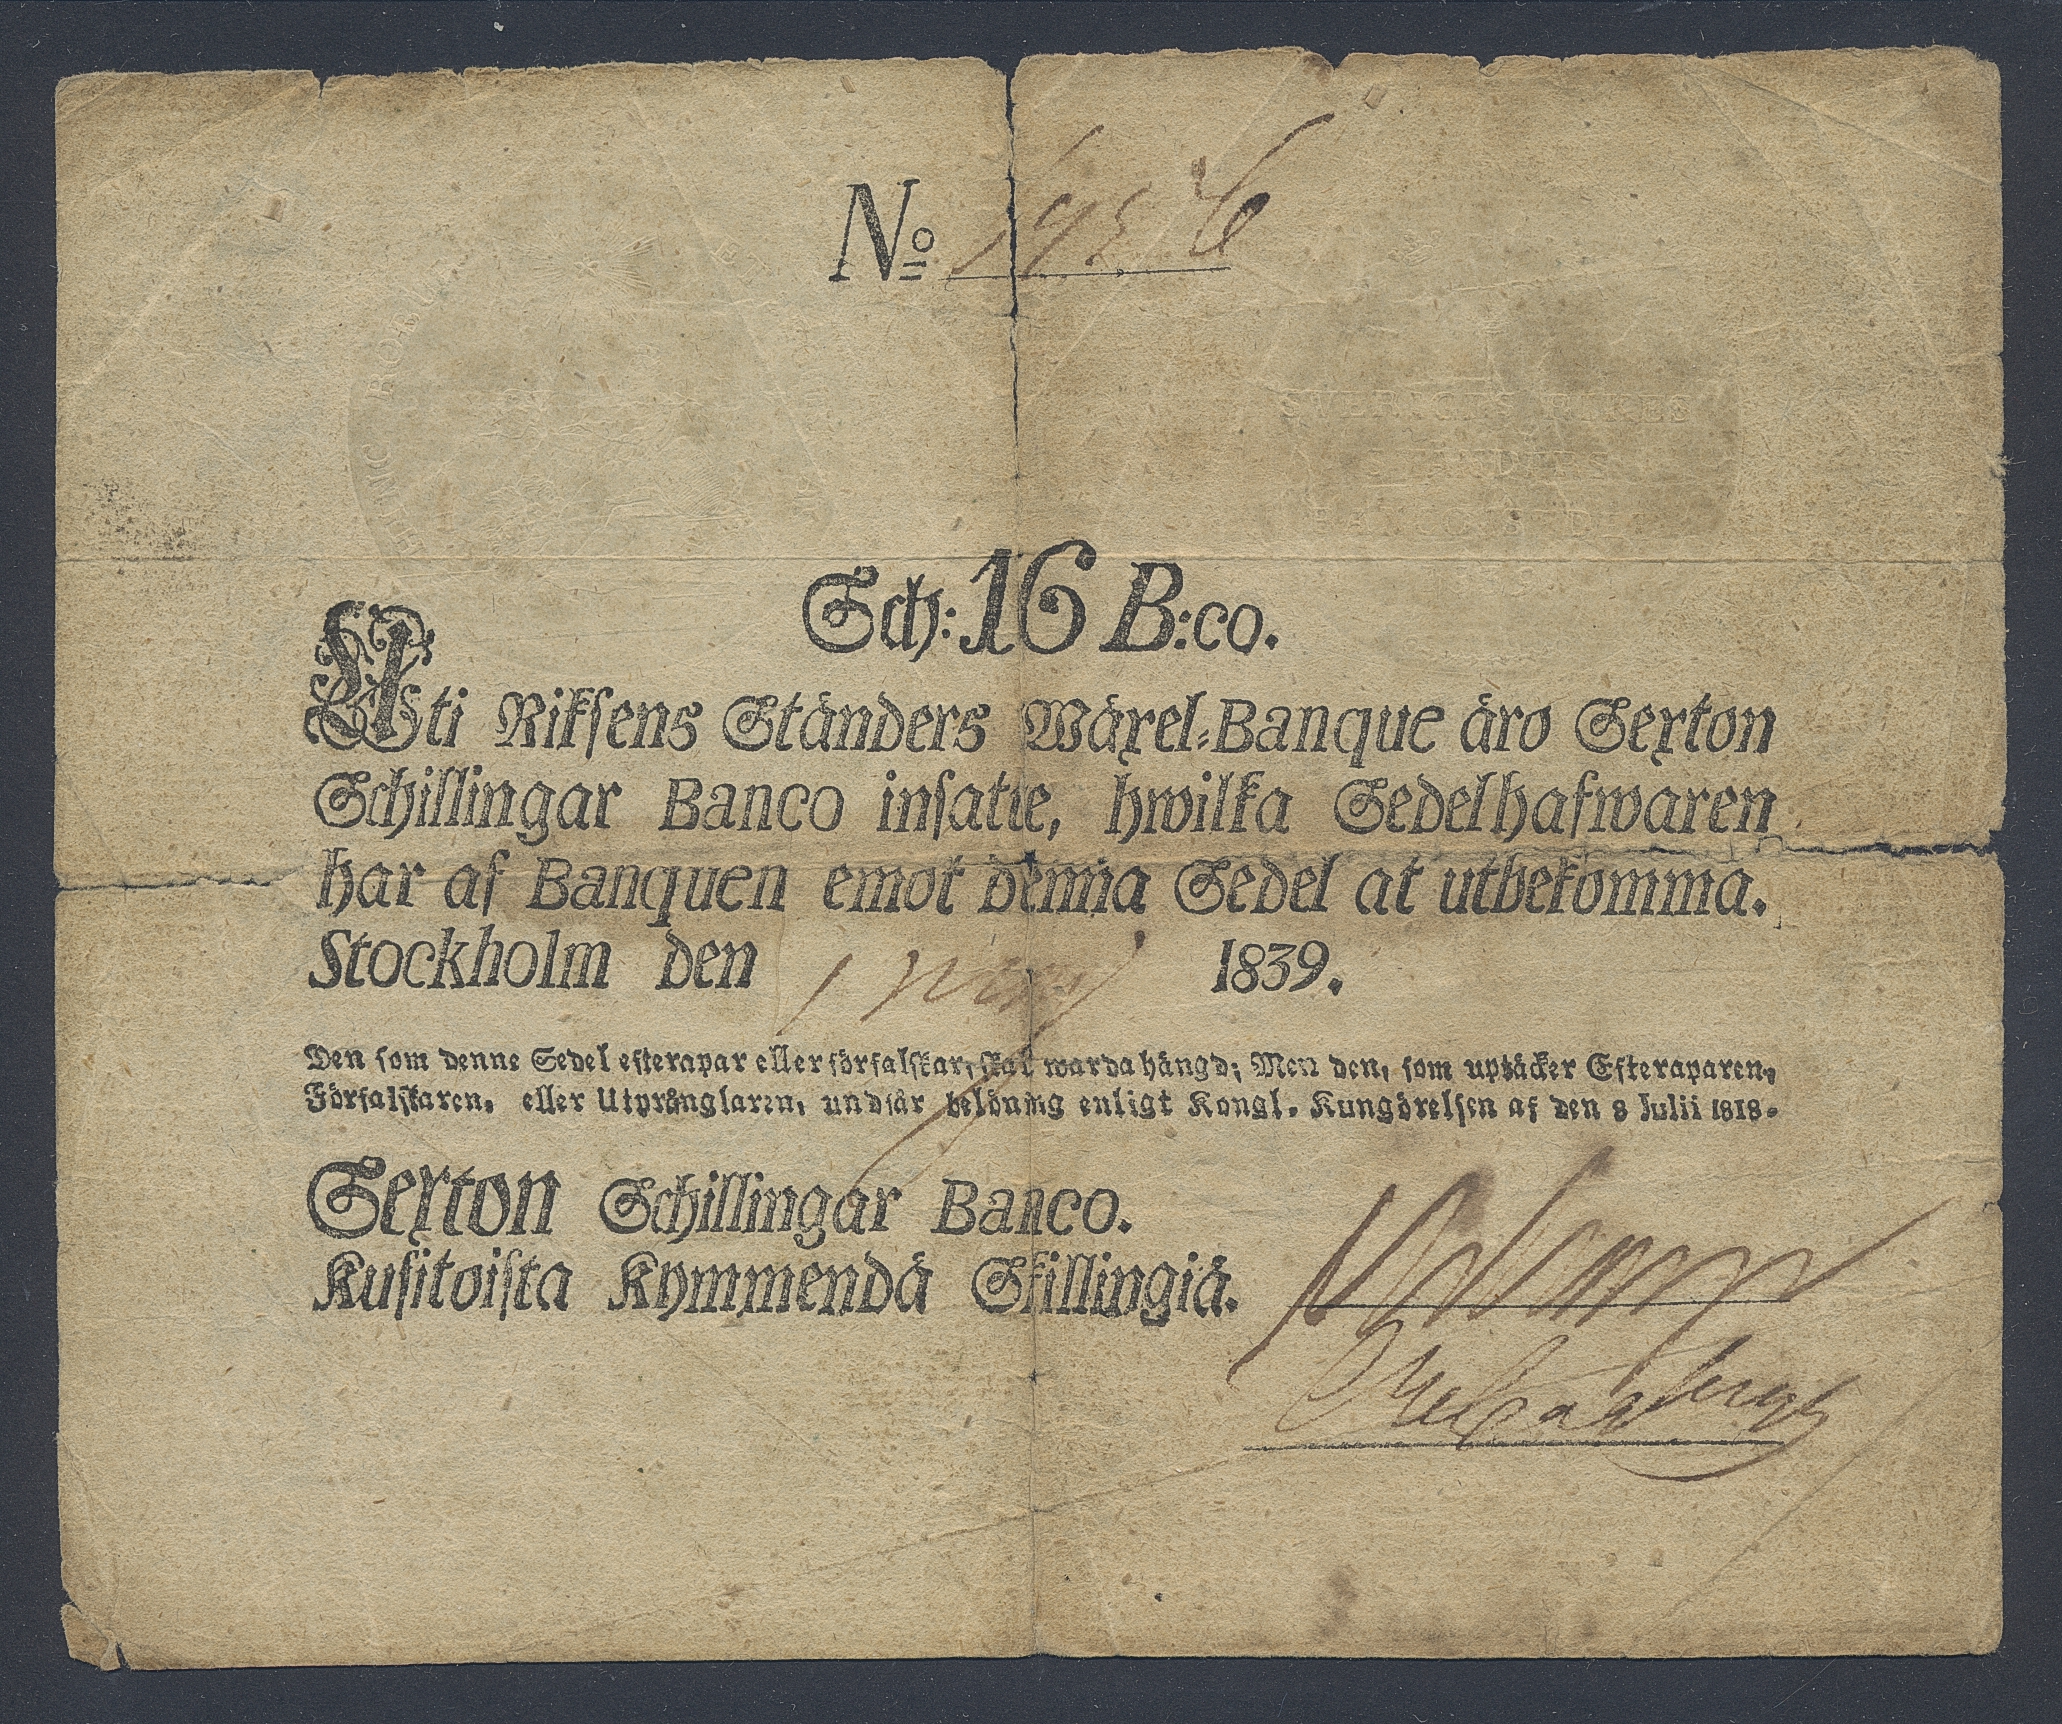 No
SVERIGES RIKES
STÄNDERS
Sch: 16 B:co.
Uti Riksens Ständers Wäxel-Banque äro Sexton
Schillingar Banco insatte, hwilka Sedelhafwaren
har af Banquen emot denna Sedel at utbekomma.
Stockholm den 1 1839.
Den som denne Sedel efterapar eller förfalskar, skal warda hängd; Men den, som uptäcker Efteraparen,
Förfalskaren, eller Utprånglaren, undfår belöning enligt Kongl. Kungörelsen af den 8 Julii 1818.
Sexton Schillingar Banco.
Kusitoista Kymmendä Skillingiä.